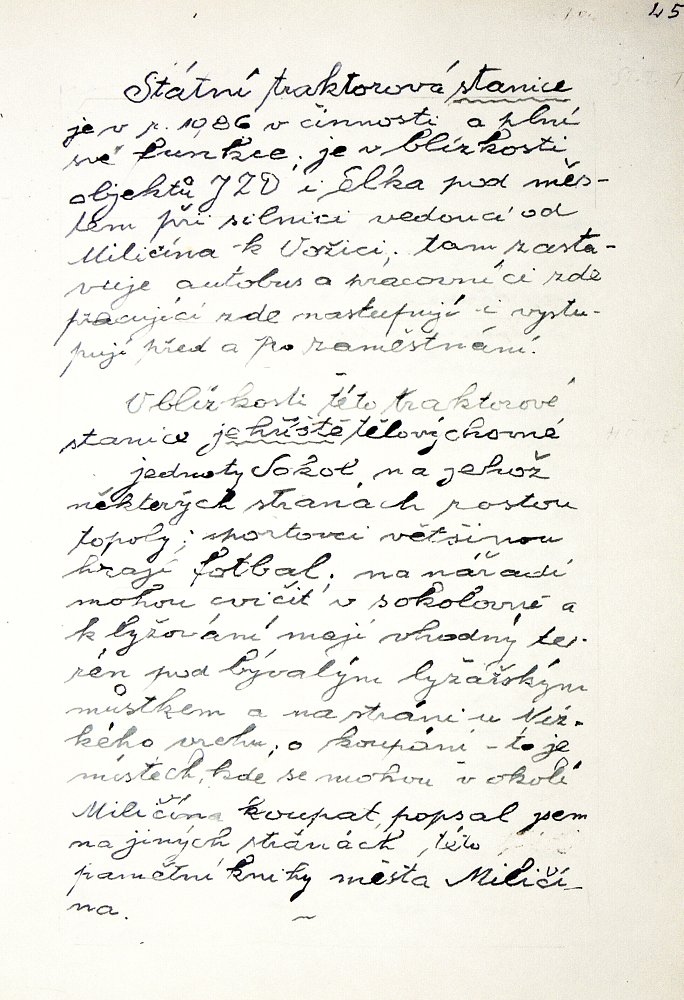 45
Státní traktorová stanice
je v r. 1986 v činnosti a plní
své funkce; je v blízkosti
objektů JZD i Elka pod měs-
tem při silnici vedoucí od
Miličína k Vožici; tam zasta-
vuje autobus a pracovníci zde
pracující zde nastupují i vystu-
pují před a po zaměstnání.
V blízkosti této traktorové
stanice je hřiště tělovýchovné
jednoty Sokol, na jehož
některých stranách rostou
topoly; sportovci většinou
hrají fotbal; na nářadí
mohou cvičit v sokolovně a
k lyžování mají vhodný te-
rén pod bývalým lyžařským
můstkem a na stráni u Níz-
kého vrchu; o koupání - to je
místech, kde se mohou v okolí
Miličína koupat, popsal jsem
na jiných stránách této
pamětní knihy města Miličí-
na.